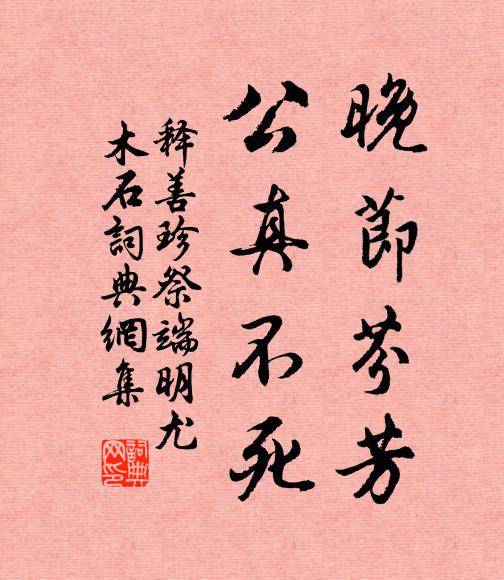 晚節芬芳
公真不死
释善珍祭端明尤
木石詞典網集
詞典
网印